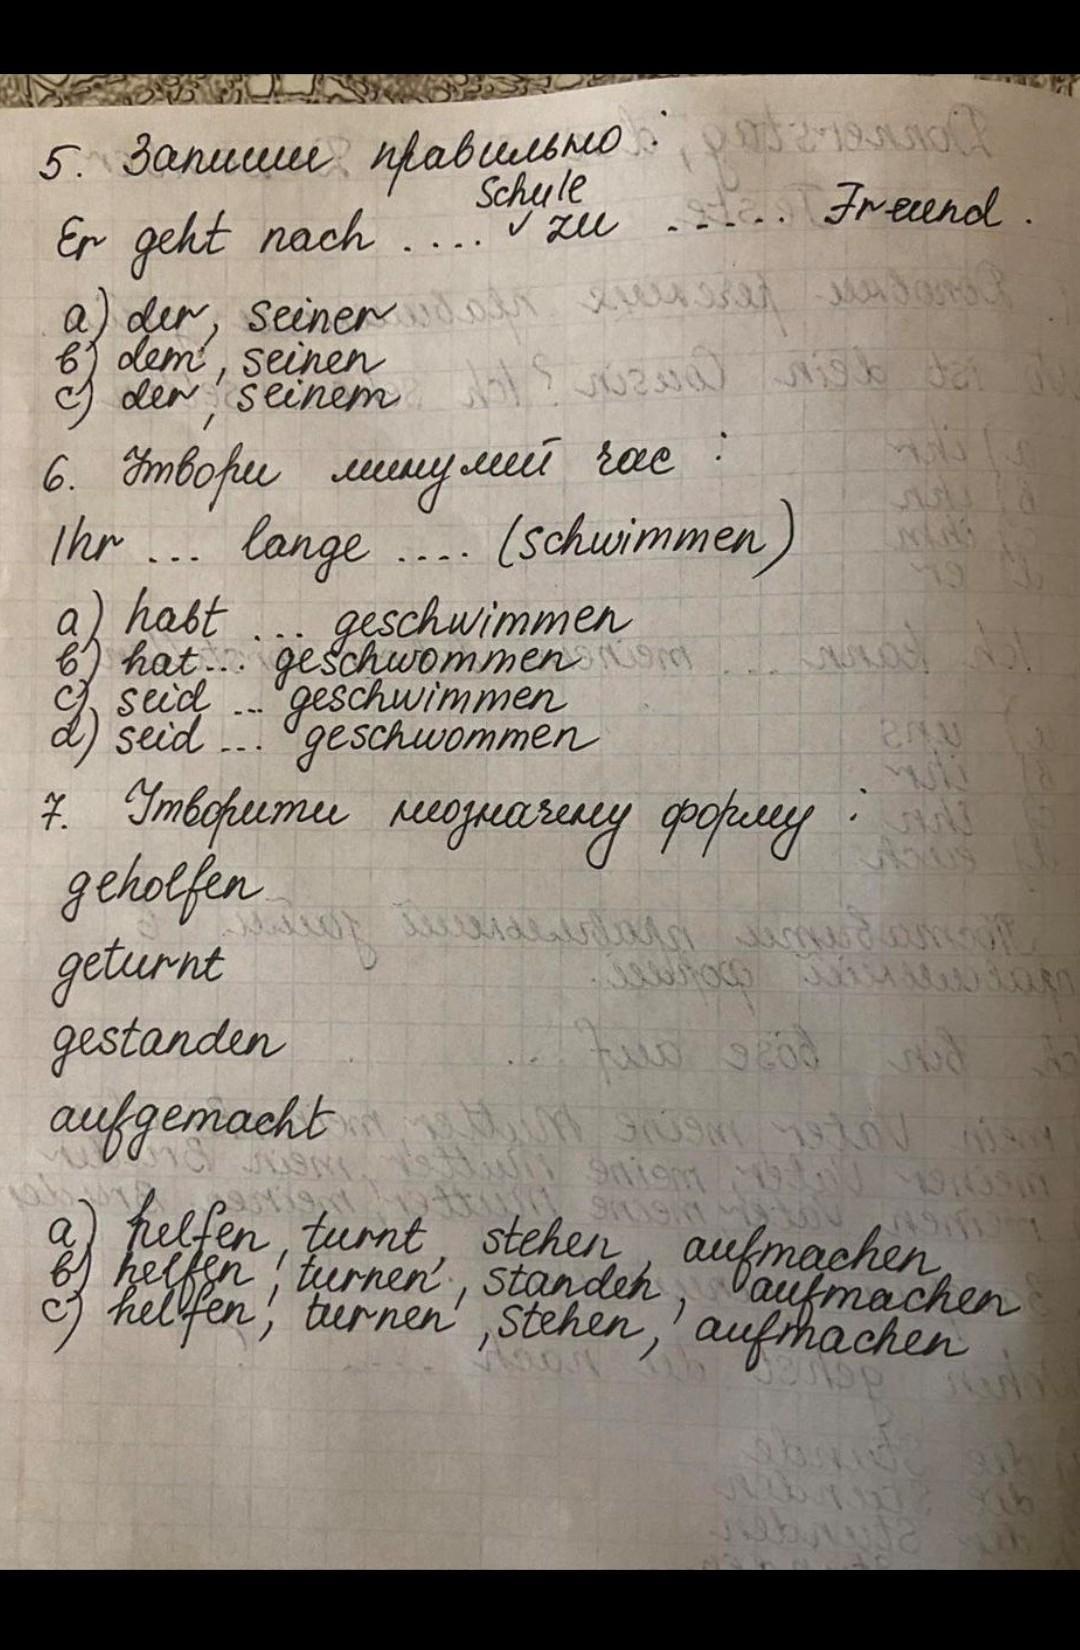 5. Запиши правильно:
Schule
Er geht nach .... ✓ zu ...... Freund.
a) der, seiner
b) dem, seinen
c) der, seinem
6. Утвори минулий час:
Ihr ... lange .... (schwimmen)
a) habt ... geschwimmen
b) hat... geschwommen
c) seid ... geschwimmen
d) seid ... geschwommen
7. Утворити неозначену форму:
geholfen
geturnt
gestanden
aufgemacht
a) helfen, turnt, stehen, aufmachen
b) helfen, turnen, standen, aufmachen
c) helfen, turnen, stehen, aufmachen